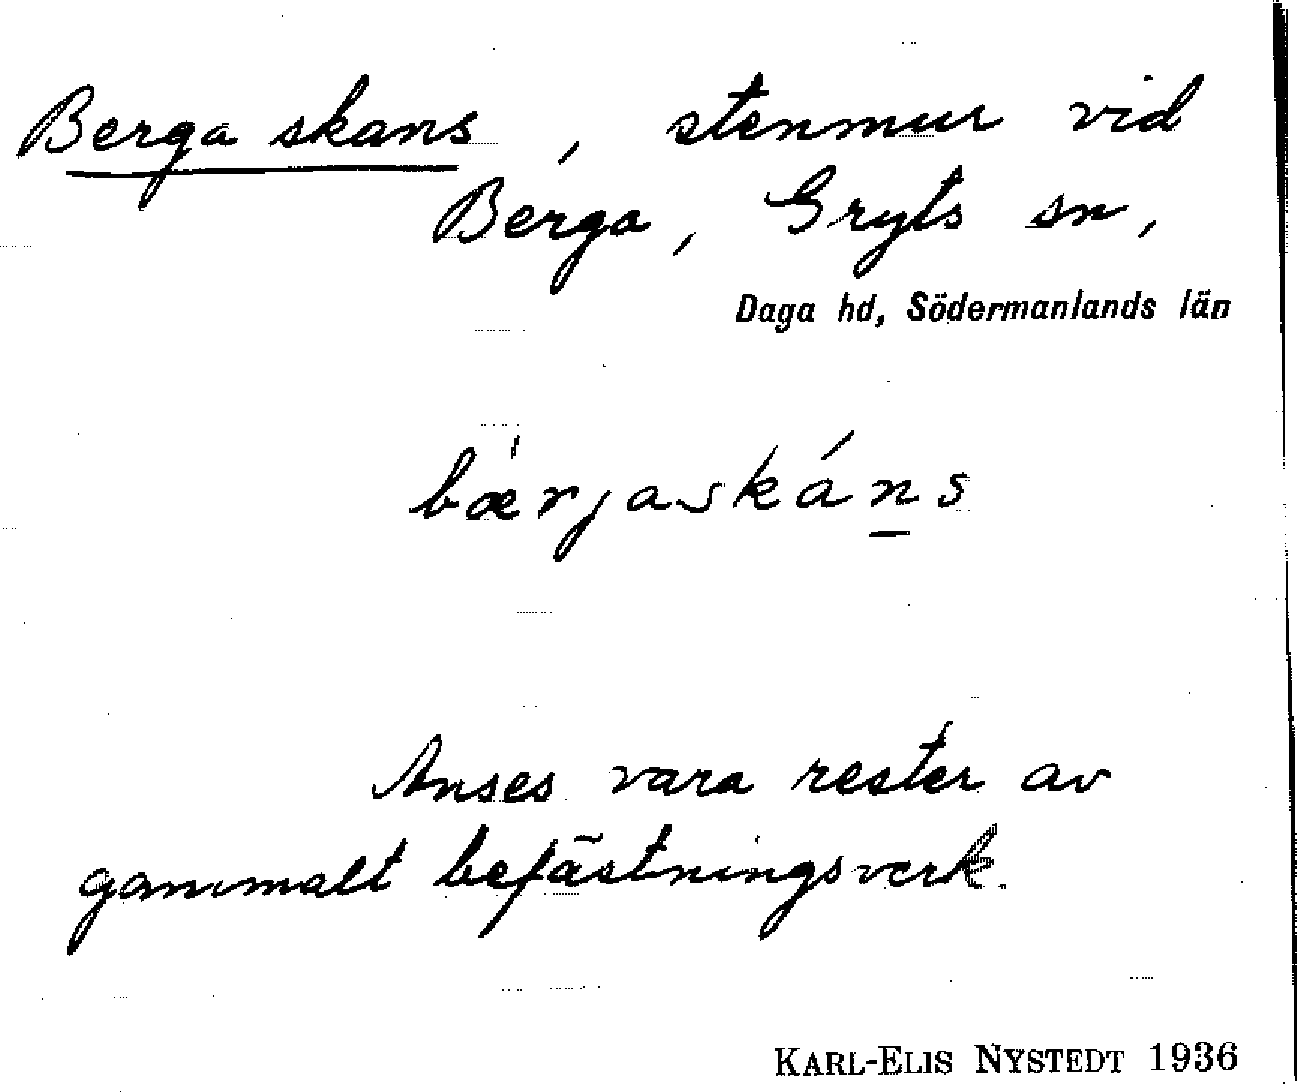 Berga skans, stenmur vid
Berga, Gryts sn,
Daga hd, Södermanlands län
bæ̀rjaskáns
Anses vara rester av
gammalt befästningsverk.
KARL-ELIS NYSTEDT 1936